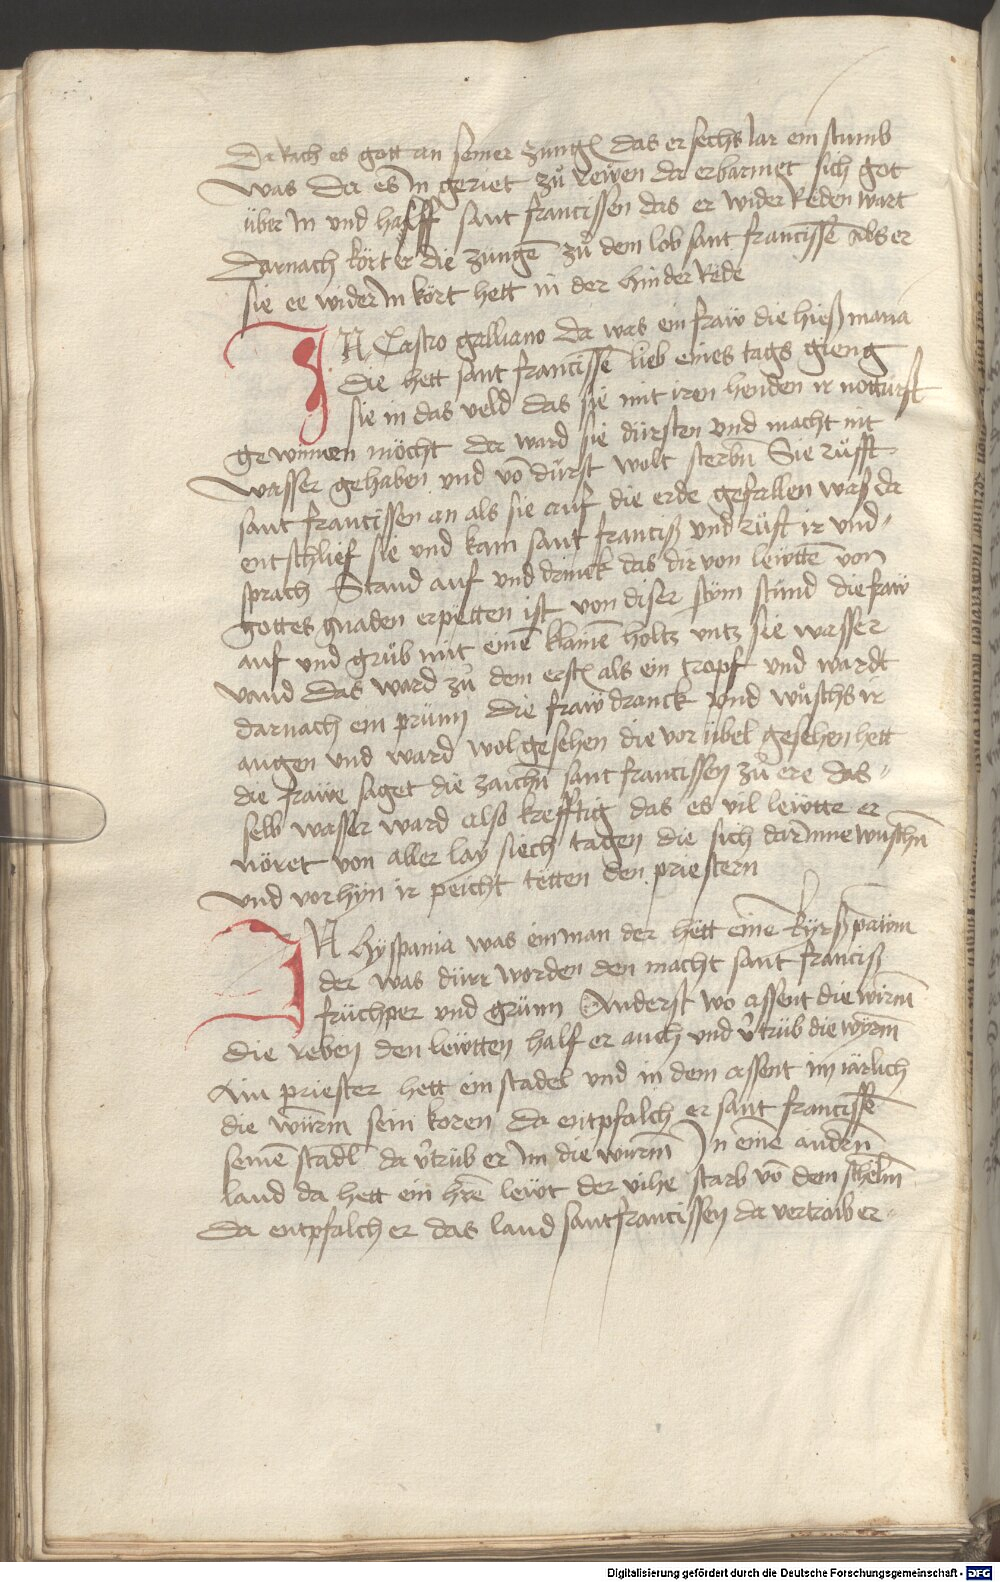 Da Rach es gott an seiner zungen das er sechs Iar ein stumb
was Da es In geriet zů rewen da erbarmet sich got
über In und halff sant francissen das er wider Reden wart
Darnach kört er die zungē zů dem lob sant francissē Als er
sie ee wider In kört hett in der hinder Rede
IN Castro galliano Da was ein fraw die hieß maria
die hett sant francissē lieb eines tags gieng
sie in das veld das sie mit iren henden ir notturft
gewinnen möcht da ward sie dürsten vnd macht nit
wasser gehaben vnd võ dürst wolt sterbñ Sie rüfft
sant francissen an als sie auf die erde gefallen was da
entschlief sie vnd kam sant francisß vnd rüft ir vnd
sprach Stand auf vnd drinck das dir von lewttē von
gottes gnaden erpetten ist von diser stym stund die fraw
auf vnd grüb mit einē klainē holtz vntz sie wasser
vand das ward zů dem erstē als ein tropf vnd wardt
darnach ein prünn Die fraw dranck vnd wůschs ir
augen vnd ward wol gesehen die vor übel gesehen hett
die frawe saget die zaichñ sant francissen zů ere das
selb wasser ward also krefftig das es vil lewtte er
nöret von aller lay siech tagen die sich darInne wuschñ
vnd vorhyn ir peicht tetten den priestern
IN Hyspania was ein man der hett einē kyrsßpawm
der was dürr worden den macht sant francisß
früchper vnd grünn Anderst wo assent die wirm
die reben den lewtten half er auch vnd v̉trüb die wyrm
Ain priester hett ein stadel vnd in dem assent im iärlich
die würm sein koren da entpfalch er sant francissē
seinē stadl da v̉trüb er Im die würm In einē andrñ
land da hett ein h̉rē lewt der vihe starb võ dem schelm
Da entpfalch er das land sant francissen da vertraib er
Digitalisierung gefördert durch die Deutsche Forschungsgemeinschaft - DFG